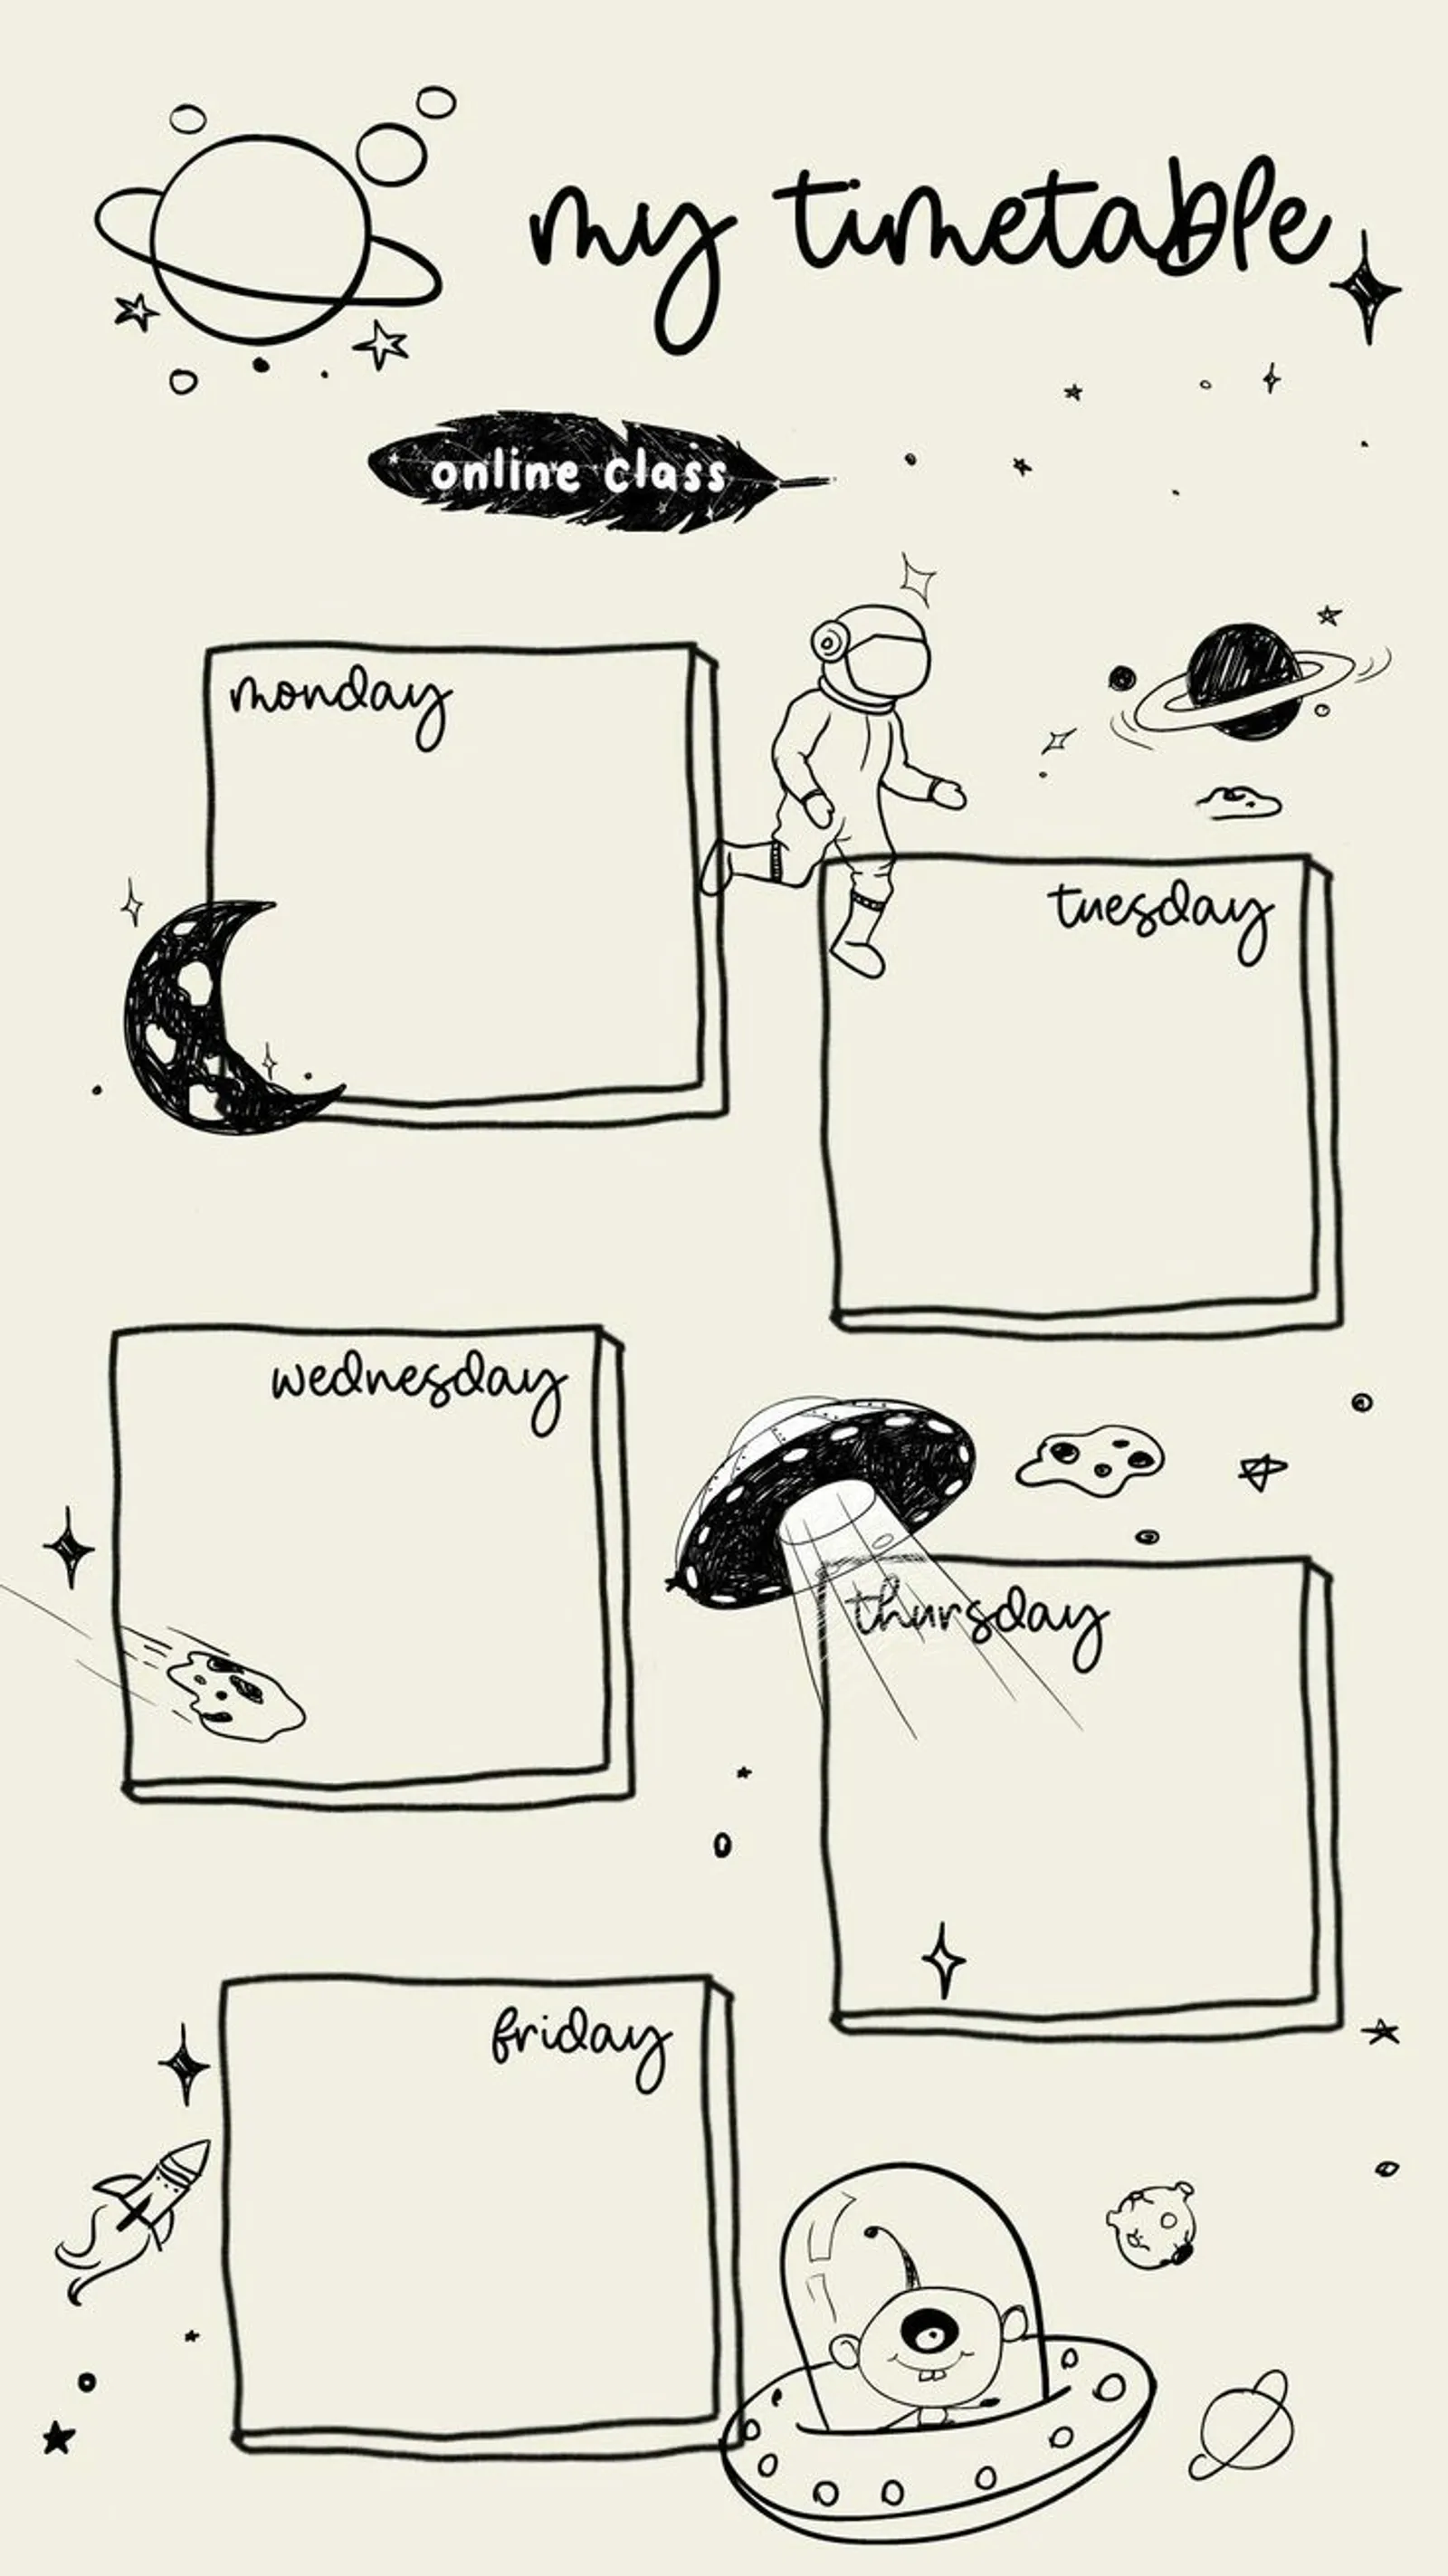 my timetable
online class
monday
tuesday
wednesday
thursday
friday